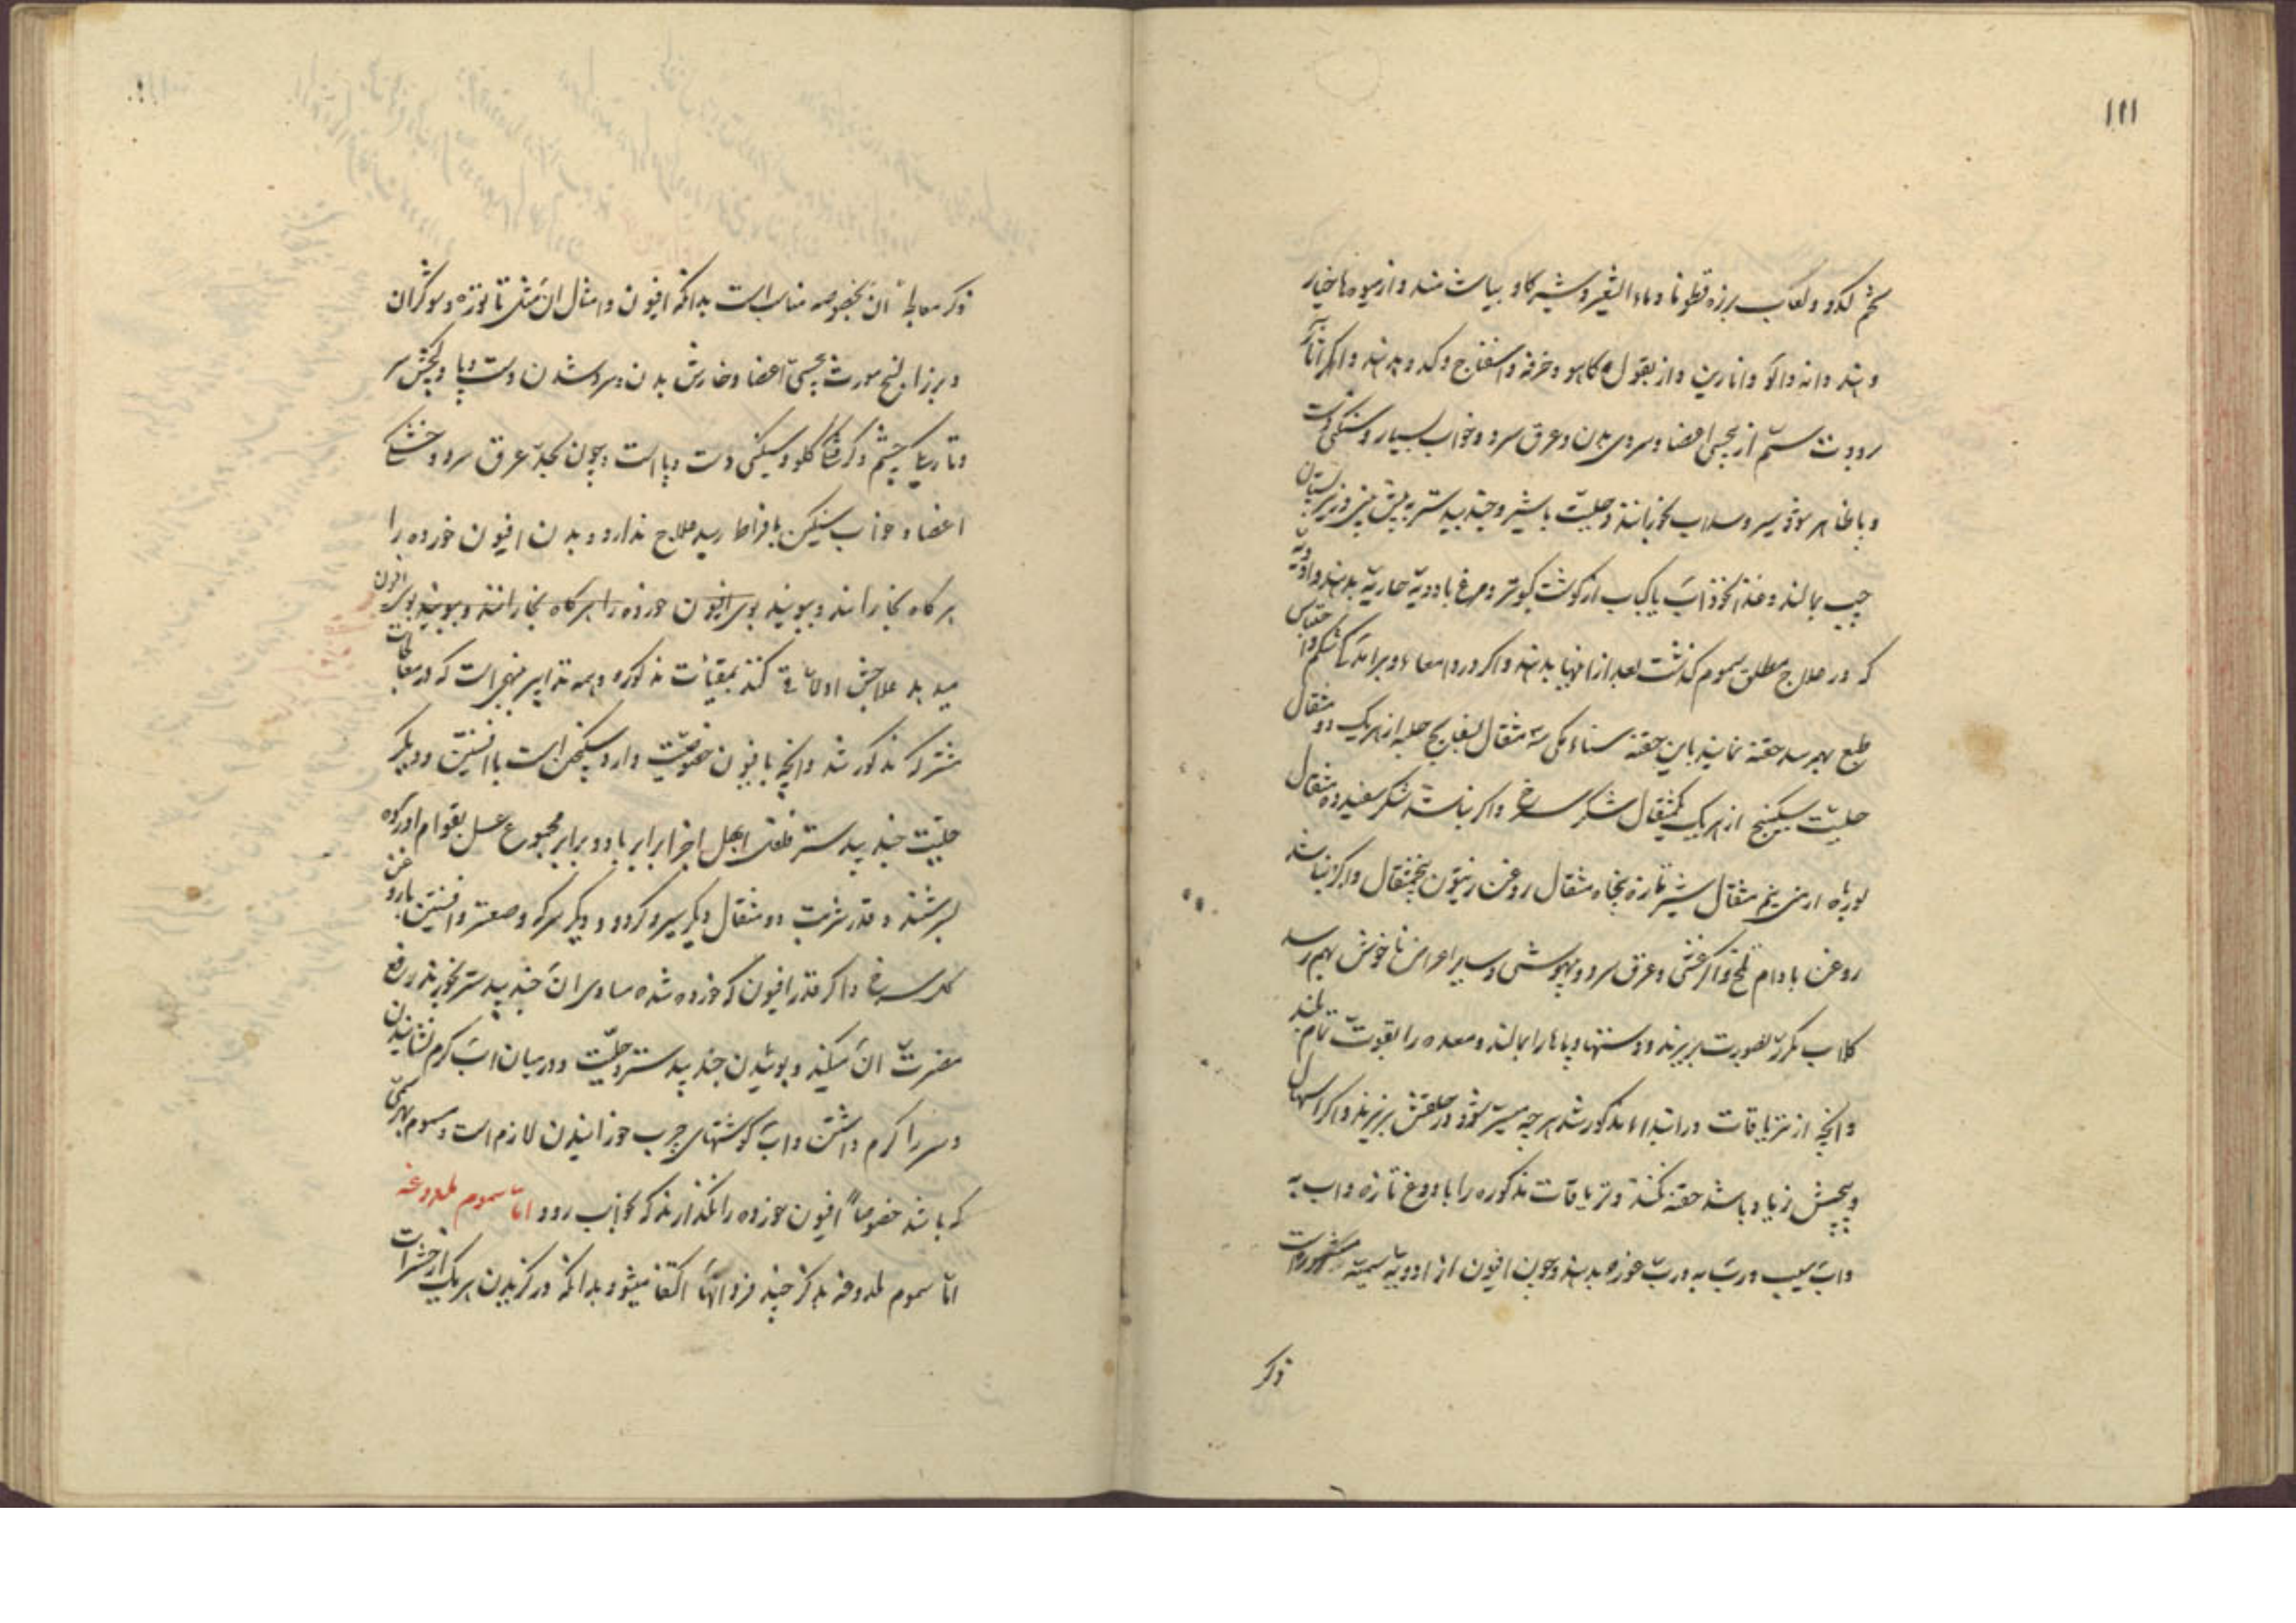 ۱۱۱
تخم کدو و لعاب بزره قطونا و ماء الشعیر و شیر کاو بیاشامند و از میوه‌ها خیار
و هندوانه و آلو و انارین و از بقول کاهو و خرفه و اسفناج و کدو بدهند و اکر آثار
برودت سم از بی‌حسی اعضا و سردی بدن و عرق سرد و خواب بسیار و سنکینی
و یا ظاهر شود سیر و سداب بخورانند و حلتیت با شیر و جندبیدستر به پیش بینی و زیر پستان
چپ بمالند و غذا نخوداب یا کباب از کوشت کبوتر و مرغ با ادویهٔ حاریه بدهند و ادویهٔ
که در علاج مطلق سموم کذشت بعد از انها بدهند و اکر درد امعاء و برامدکی شکم و احتباس
طبع بهم رسد حقنه نمایند باین حقنه سناء مکی سه مثقال بسفایج حلبه از هر یک دو مثقال
حلتیت سکبینج از هر یک یکمثقال شکر سرخ و اکر نباشد شکر سفید ده مثقال
بورهٔ ارمنی نیم مثقال شیر تازه پنجاه مثقال روغن زیتون پنجمثقال و اکر نباشد
روغن بادام تلخ و اکر غشی و عرق سرد و بیهوشی و سایر اعراض ناخوش بهم رسد
کلاب مکرر بصورت بریزند و دستها و پاها را بمالند و معده را بقوت تمام بمالند
و انچه از تریاقات در ابتداء مذکور شد هر چه میسر شود در حلقش بریزند و اکر اسهال
و پیچش زیاد باشد حقنه نکنند و تریاقات مذکوره را با دوغ تازه و اب به
و اب سیب و رب به و رب غوره بدهند و چون افیون از ادویهٔ سمیه مشهوره است
ذکر
ذکر معالجهٔ ان بخصوصه مناسب است بدانکه افیون و امثال ان مثل تاتوره و شوکران
و بزر البنج مورث بی‌حسی اعضا و خارش بدن و سرد شدن دست و پا و پیچش سر
و تاریکی چشم و کرفتکی کلو و سنکینی دست و پا است و چون بحد عرق سرد و خشکی
اعضا و خواب سنکین بافراط رسید علاج ندارد و بدن افیون خورده را
هر کاه بخارانند و ببویند بوی افیون خورده را هر کاه بخارانند و ببویند بوی افیون
میدهد علاجش اولا قی کنند بمقیئات مذکوره و همه تدابیر منهی است که در معالجات
مشترکه مذکور شد و انچه با افیون خصوصیت دارد سکنجبین است با افسنتین و دیکر
حلتیت جندبیدستر فلفل ابهل اجزا برابر با دو برابر مجموع عسل بقوام اورده
بسرشند و قدر شربت دو مثقال دیکر سیر و کردو و دیکر سرکه و صعتر و افسنتین با روغن
کل سرخ و اکر قدر افیون که خورده شده مساوی ان جندبیدستر بخورند رفع
مضرت ان میکند و بوئیدن جندبیدستر و حلتیت و در میان اب کرم نشانیدن
و سر را کرم داشتن و اب کوشتهای چرب خورانیدن لازم است و مسموم بهر سمی
که باشد خصوصاً افیون خورده را نکذارند که بخواب رود اما سموم ملدوغه
اما سموم ملدوغه بذکر چند فرد انها اکتفا میشود بدانکه در کزیدن هر یک از حشرات